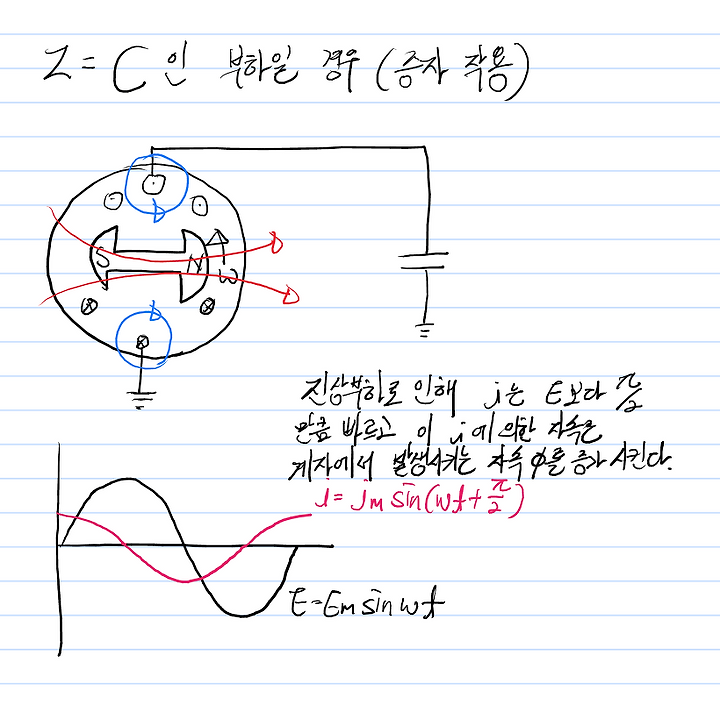 Z = C 인 부하일 경우 (증자 작용)
S N ω
진상부하로 인해 i는 E보다 π/2
만큼 빠르고 이 i에 의한 자속은
계자에서 발생시키는 자속 φ를 증가시킨다.
i = im sin(ωt + π/2)
E = Em sin ωt